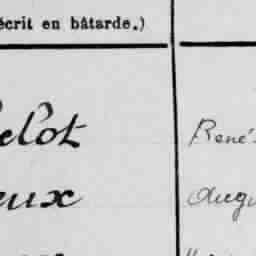 écrit en bâtarde.)
elot René
eux Augu